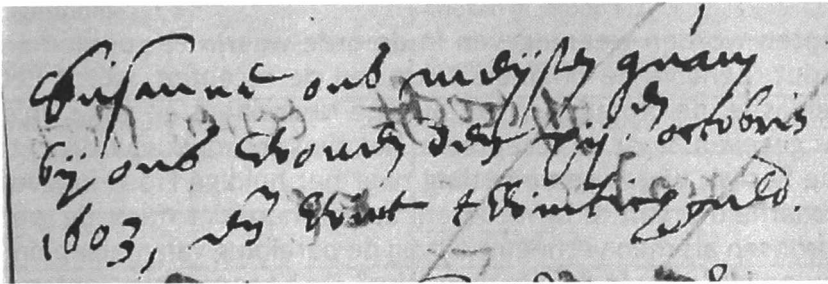 Susanne ons meijssen quam
bij ons wonen den xij en octobris
1603, en wint twintich guld.